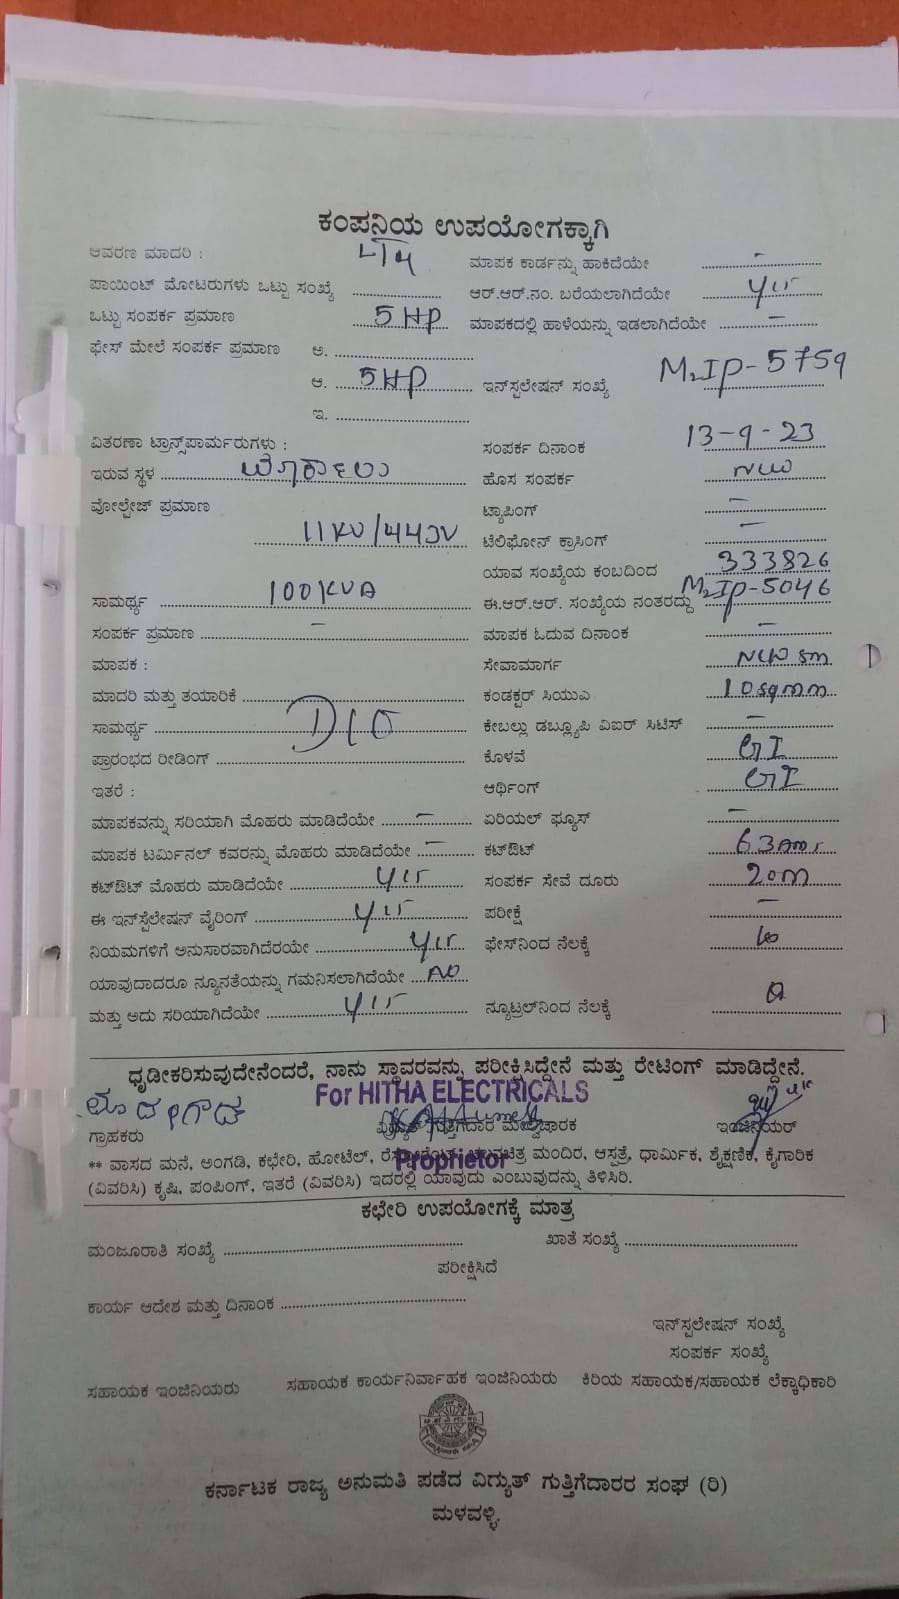 ಕಂಪನಿಯ ಉಪಯೋಗಕ್ಕಾಗಿ
ಆವರಣ ಮಾದರಿ : LT4 ಮಾಪಕ ಕಾರ್ಡನ್ನು ಹಾಕಿದೆಯೇ –
ಪಾಯಿಂಟ್ ಮೋಟರುಗಳು ಒಟ್ಟು ಸಂಖ್ಯೆ ಆರ್.ಆರ್.ನಂ. ಬರೆಯಲಾಗಿದೆಯೇ yes
ಒಟ್ಟು ಸಂಪರ್ಕ ಪ್ರಮಾಣ 5HP ಮಾಪಕದಲ್ಲಿ ಹಾಳೆಯನ್ನು ಇಡಲಾಗಿದೆಯೇ –
ಫೇಸ್ ಮೇಲೆ ಸಂಪರ್ಕ ಪ್ರಮಾಣ ಅ.
ಆ. 5HP ಇನ್‌ಸ್ಟಲೇಷನ್ ಸಂಖ್ಯೆ M2IP-5759
ಇ.
ವಿತರಣಾ ಟ್ರಾನ್ಸ್‌ಪಾರ್ಮರುಗಳು : ಸಂಪರ್ಕ ದಿನಾಂಕ 13-9-23
ಇರುವ ಸ್ಥಳ ಹೊಸ ಸಂಪರ್ಕ New
ವೋಲ್ಟೇಜ್ ಪ್ರಮಾಣ ಟ್ಯಾಪಿಂಗ್ –
11KV/440V ಟೆಲಿಫೋನ್ ಕ್ರಾಸಿಂಗ್ –
ಯಾವ ಸಂಖ್ಯೆಯ ಕಂಬದಿಂದ 333826
ಸಾಮರ್ಥ್ಯ 100KVA ಈ.ಆರ್.ಆರ್. ಸಂಖ್ಯೆಯ ನಂತರದ್ದು M2IP-5046
ಸಂಪರ್ಕ ಪ್ರಮಾಣ – ಮಾಪಕ ಓದುವ ದಿನಾಂಕ –
ಮಾಪಕ : ಸೇವಾಮಾರ್ಗ New sm
ಮಾದರಿ ಮತ್ತು ತಯಾರಿಕೆ ಕಂಡಕ್ಟರ್ ಸಿಯುಎ 10sqmm
ಸಾಮರ್ಥ್ಯ ಕೇಬಲ್ಲು ಡಬ್ಲ್ಯೂಪಿ ವಿಐರ್ ಸಿಟಿಸ್ –
ಪ್ರಾರಂಭದ ರೀಡಿಂಗ್ ಕೊಳವೆ GI
ಇತರೆ : ಆರ್ಥಿಂಗ್ GI
ಮಾಪಕವನ್ನು ಸರಿಯಾಗಿ ಮೊಹರು ಮಾಡಿದೆಯೇ – ಏರಿಯಲ್ ಫ್ಯೂಸ್ –
ಮಾಪಕ ಟರ್ಮಿನಲ್ ಕವರನ್ನು ಮೊಹರು ಮಾಡಿದೆಯೇ – ಕಟ್‌ಔಟ್ 63Am
ಕಟ್‌ಔಟ್ ಮೊಹರು ಮಾಡಿದೆಯೇ yes ಸಂಪರ್ಕ ಸೇವೆ ದೂರು 20m
ಈ ಇನ್‌ಸ್ಟಲೇಷನ್ ವೈರಿಂಗ್ yes ಪರೀಕ್ಷೆ –
ನಿಯಮಗಳಿಗೆ ಅನುಸಾರವಾಗಿದೆರಯೇ yes ಫೇಸ್‌ನಿಂದ ನೆಲಕ್ಕೆ
ಯಾವುದಾದರೂ ನ್ಯೂನತೆಯನ್ನು ಗಮನಿಸಲಾಗಿದೆಯೇ NO
ಮತ್ತು ಅದು ಸರಿಯಾಗಿದೆಯೇ yes ನ್ಯೂಟ್ರಲ್‌ನಿಂದ ನೆಲಕ್ಕೆ
ಧೃಡೀಕರಿಸುವುದೇನೆಂದರೆ, ನಾನು ಸ್ಥಾವರವನ್ನು ಪರೀಕ್ಷಿಸಿದ್ದೇನೆ ಮತ್ತು ರೇಟಿಂಗ್ ಮಾಡಿದ್ದೇನೆ.
For HITHA ELECTRICALS
ಗ್ರಾಹಕರು ವಿದ್ಯುತ್ ಗುತ್ತಿಗೆದಾರ ಮೇಲ್ವಿಚಾರಕ ಇಂಜಿನಿಯರ್
Proprietor
** ವಾಸದ ಮನೆ, ಅಂಗಡಿ, ಕಛೇರಿ, ಹೋಟೆಲ್, ಮಂದಿರ, ಆಸ್ಪತ್ರೆ, ಧಾರ್ಮಿಕ, ಶೈಕ್ಷಣಿಕ, ಕೈಗಾರಿಕೆ
(ವಿವರಿಸಿ) ಕೃಷಿ, ಪಂಪಿಂಗ್, ಇತರೆ (ವಿವರಿಸಿ) ಇದರಲ್ಲಿ ಯಾವುದು ಎಂಬುವುದನ್ನು ತಿಳಿಸಿರಿ.
ಕಛೇರಿ ಉಪಯೋಗಕ್ಕೆ ಮಾತ್ರ
ಮಂಜೂರಾತಿ ಸಂಖ್ಯೆ ಖಾತೆ ಸಂಖ್ಯೆ
ಪರೀಕ್ಷಿಸಿದೆ
ಕಾರ್ಯ ಆದೇಶ ಮತ್ತು ದಿನಾಂಕ
ಇನ್‌ಸ್ಟಲೇಷನ್ ಸಂಖ್ಯೆ
ಸಂಪರ್ಕ ಸಂಖ್ಯೆ
ಸಹಾಯಕ ಇಂಜಿನಿಯರು ಸಹಾಯಕ ಕಾರ್ಯನಿರ್ವಾಹಕ ಇಂಜಿನಿಯರು ಕಿರಿಯ ಸಹಾಯಕ/ಸಹಾಯಕ ಲೆಕ್ಕಾಧಿಕಾರಿ
ಕರ್ನಾಟಕ ರಾಜ್ಯ ಅನುಮತಿ ಪಡೆದ ವಿದ್ಯುತ್ ಗುತ್ತಿಗೆದಾರರ ಸಂಘ (ರಿ)
ಮಳವಳ್ಳಿ.